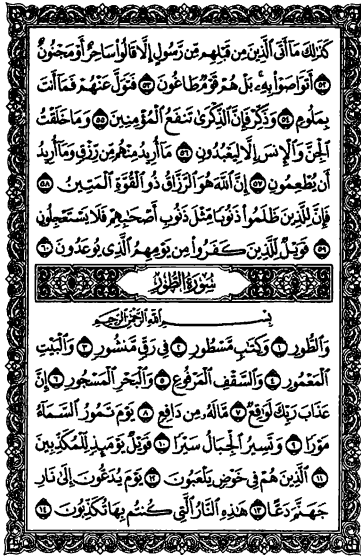 كَذَٰلِكَ مَآ أَتَى ٱلَّذِينَ مِن قَبْلِهِم مِّن رَّسُولٍ إِلَّا قَالُوا۟ سَاحِرٌ أَوْ مَجْنُونٌ
٥٢ أَتَوَاصَوْا۟ بِهِۦ ۚ بَلْ هُمْ قَوْمٌ طَاغُونَ ٥٣ فَتَوَلَّ عَنْهُمْ فَمَآ أَنتَ
بِمَلُومٍ ٥٤ وَذَكِّرْ فَإِنَّ ٱلذِّكْرَىٰ تَنفَعُ ٱلْمُؤْمِنِينَ ٥٥ وَمَا خَلَقْتُ
ٱلْجِنَّ وَٱلْإِنسَ إِلَّا لِيَعْبُدُونِ ٥٦ مَآ أُرِيدُ مِنْهُم مِّن رِّزْقٍ وَمَآ أُرِيدُ
أَن يُطْعِمُونِ ٥٧ إِنَّ ٱللَّهَ هُوَ ٱلرَّزَّاقُ ذُو ٱلْقُوَّةِ ٱلْمَتِينُ ٥٨
فَإِنَّ لِلَّذِينَ ظَلَمُوا۟ ذَنُوبًا مِّثْلَ ذَنُوبِ أَصْحَٰبِهِمْ فَلَا يَسْتَعْجِلُونِ
٥٩ فَوَيْلٌ لِّلَّذِينَ كَفَرُوا۟ مِن يَوْمِهِمُ ٱلَّذِى يُوعَدُونَ ٦٠
سُورَةُ الطُّورِ
بِسْمِ ٱللَّهِ ٱلرَّحْمَٰنِ ٱلرَّحِيمِ
وَٱلطُّورِ ١ وَكِتَٰبٍ مَّسْطُورٍ ٢ فِى رَقٍّ مَّنشُورٍ ٣ وَٱلْبَيْتِ
ٱلْمَعْمُورِ ٤ وَٱلسَّقْفِ ٱلْمَرْفُوعِ ٥ وَٱلْبَحْرِ ٱلْمَسْجُورِ ٦ إِنَّ
عَذَابَ رَبِّكَ لَوَٰقِعٌ ٧ مَّا لَهُۥ مِن دَافِعٍ ٨ يَوْمَ تَمُورُ ٱلسَّمَآءُ
مَوْرًا ٩ وَتَسِيرُ ٱلْجِبَالُ سَيْرًا ١٠ فَوَيْلٌ يَوْمَئِذٍ لِّلْمُكَذِّبِينَ
١١ ٱلَّذِينَ هُمْ فِى خَوْضٍ يَلْعَبُونَ ١٢ يَوْمَ يُدَعُّونَ إِلَىٰ نَارِ
جَهَنَّمَ دَعًّا ١٣ هَٰذِهِ ٱلنَّارُ ٱلَّتِى كُنتُم بِهَا تُكَذِّبُونَ ١٤